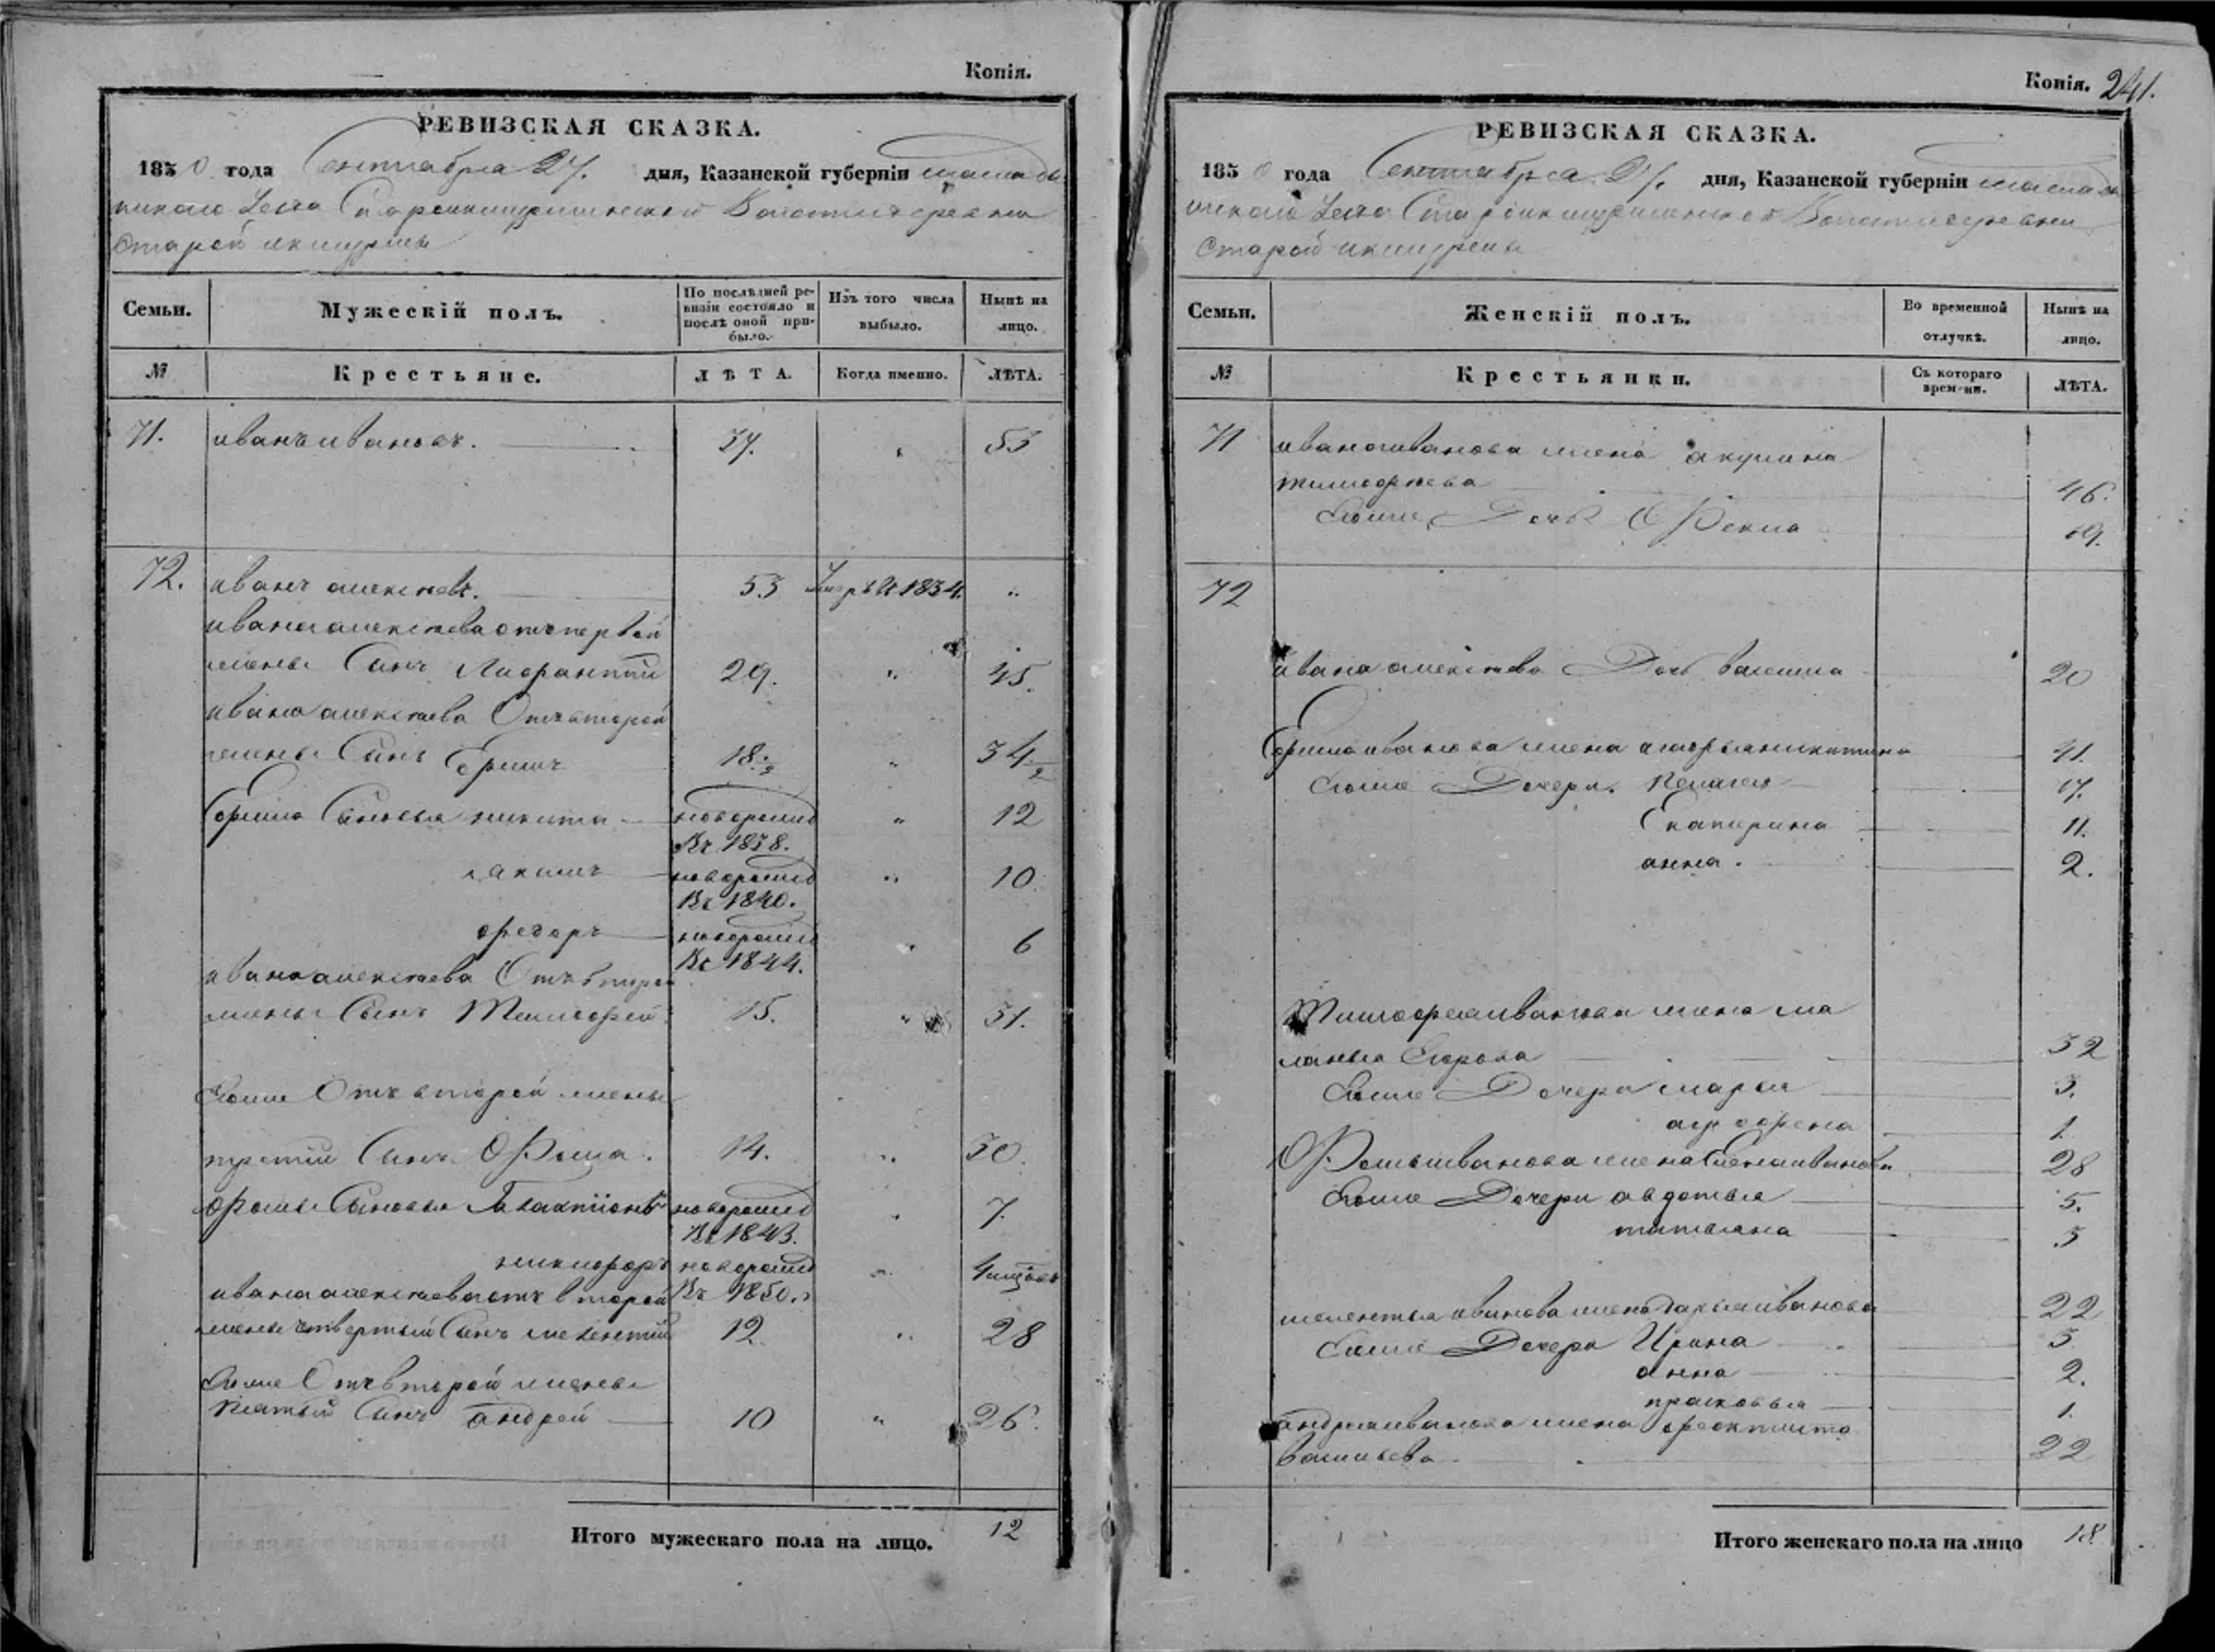 Копія.
РЕВИЗСКАЯ СКАЗКА.
1850 года Сентября 27. дня, Казанской губерніи
Уезда Староикшурминской Волости деревни
Старой икшурмы
Семьи.
Мужескій полъ.
По послѣдней ревизіи состояло и послѣ оной прибыло.
Изъ того числа выбыло.
Нынѣ на лицо.
№
Крестьяне.
ЛѢТА.
Когда именно.
ЛѢТА.
71. иванъ ивановъ. 37. " 53
72. иванъ алексеевъ. 53 Умеръ в 1834. "
ивана алексеева отъ первой
жены Сынъ Лаврентий 29. " 45.
ивана алексеева Отъ второй
жены Сынъ Ефимъ 18 1/2 " 34 1/2
Ефима Сыновья никита новорожд " 12
Въ 1838.
иакимъ новорожд " 10
Въ 1840.
федоръ новорожд " 6
Въ 1844.
ивана алексеева Отъ второй
жены Сынъ Тимофей 15. " 31.
Егоже Отъ второй жены
третий Сынъ Фома. 14. " 30.
Фомы Сыновья Галактіонъ новорожд " 7.
Въ 1843.
никифоръ новорожд "
Въ 1850.
ивана алексеева отъ второй
жены четвертый Сынъ мелентий 12. " 28
Егоже Отъ второй жены
пятый Сынъ андрей 10 " 26.
Итого мужескаго пола на лицо. 12
Копія. 241.
РЕВИЗСКАЯ СКАЗКА.
1850 года Сентября 27. дня, Казанской губерніи
Уезда Староикшурминской Волости деревни
Старой икшурмы
Семьи.
Женскій полъ.
Во временной отлучкѣ.
Нынѣ на лицо.
№
Крестьянки.
Съ котораго времени.
ЛѢТА.
71 ивана иванова жена акулина
тимофеева 46.
Егоже Дочь Фекла 19.
72
ивана алексеева Дочь 20
Ефима иванова жена никитина 41.
Егоже Дочери. Пелагея 17.
Екатерина 11.
анна. 2.
Тимофея иванова жена ма
ланья Егорова 32
Егоже Дочери марья 3.
аграфена 1.
Фомы иванова жена Елена иванова 28
Егоже Дочери авдотья 5.
татьяна 3
мелентья иванова жена дарья иванова 22
Егоже Дочери Ирина 3
анна 2.
прасковья 1.
андрея иванова жена феоктиста
васильева. 22
Итого женскаго пола на лицо 18